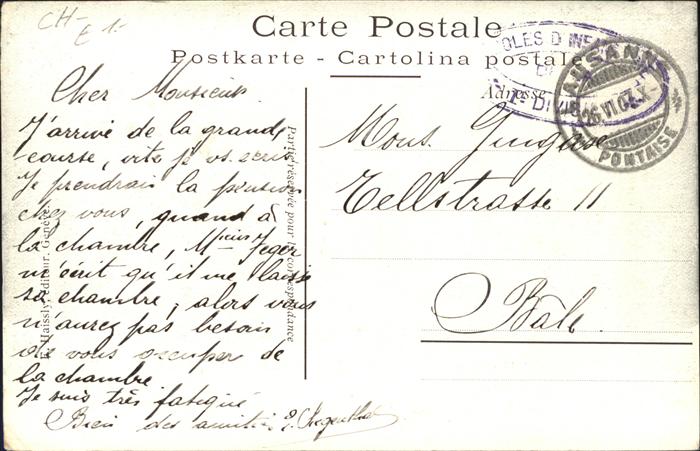 CH-
E 1.-
Carte Postale
Postkarte - Cartolina postale
Adresse
OLES D INF
LAUSANNE
26.VI.07.X-
PONTAISE
Cher Monsieur.
J'arrive de la grand
course, vite je vs. écris
Je prendrais la pension
chez vous, quand à
la chambre, Mr Jeger
m'écrit qu'il me laisse
sa chambre, alors vous
n'aurez pas besoin
de vous occuper de
la chambre
Je suis très fatigué
Bien des amitiés
Partie réservée pour la correspondance
Haissly, éditeur, Genève.
Mons.
Tellstrasse 11
Bâle.